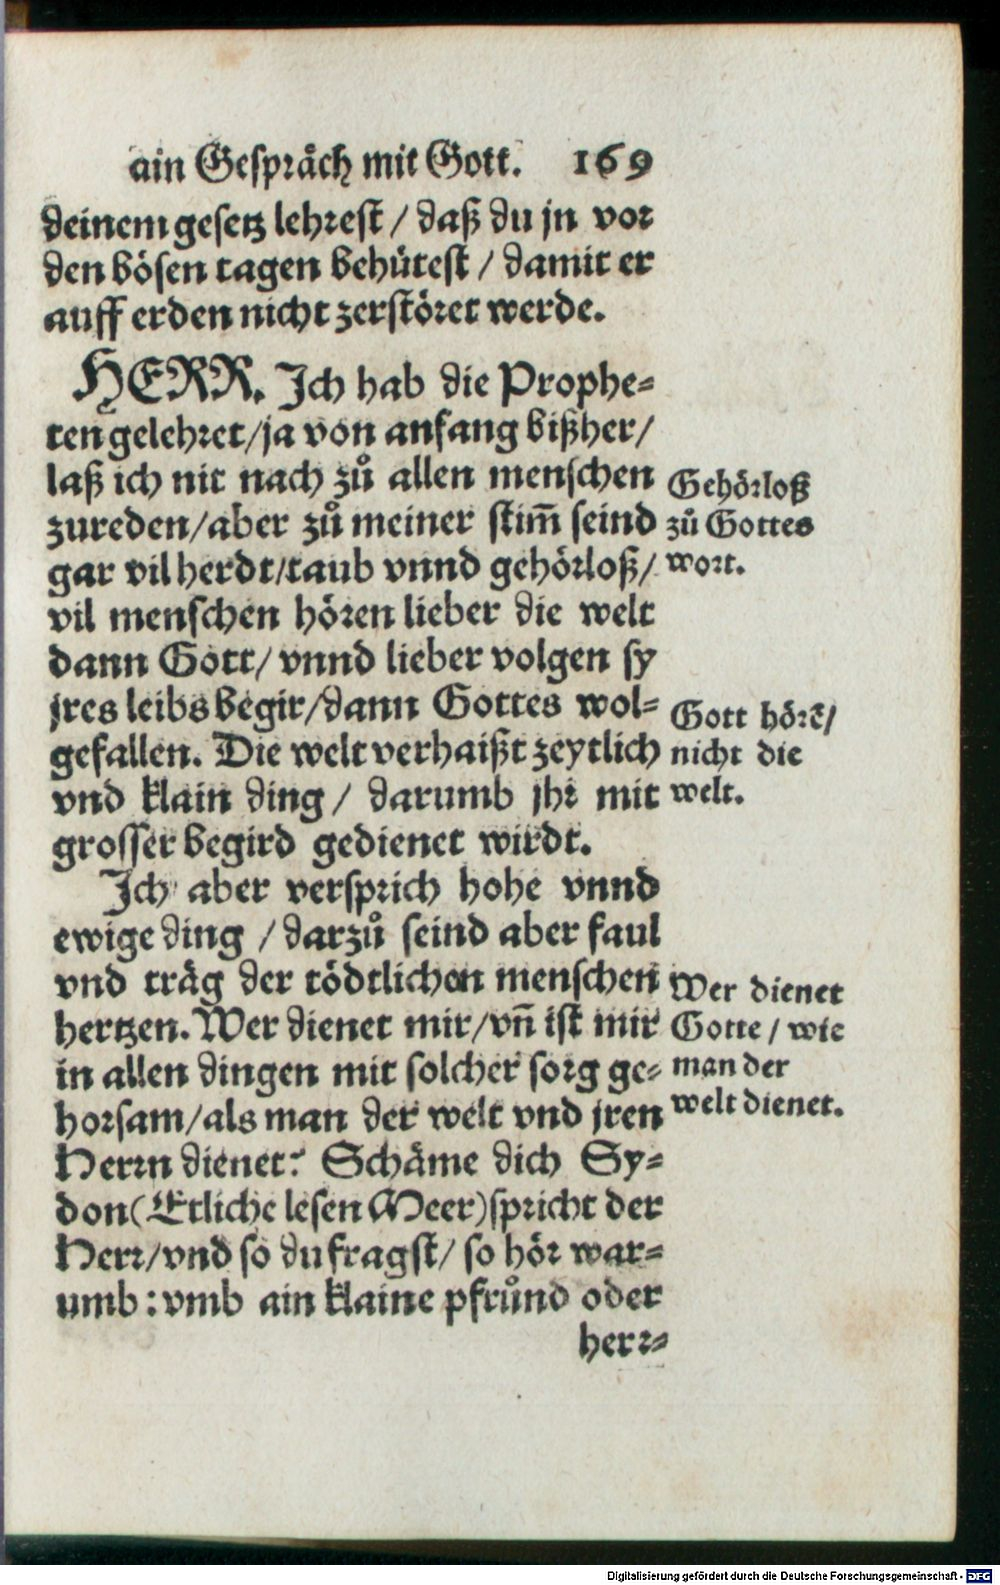 ain Gespräch mit Gott. 169
deinem gesetz lehrest / daß du jn vor
den bösen tagen behütest / damit er
auff erden nicht zerstöret werde.
HERR. Ich hab die Prophe-
ten gelehret/ja von anfang bißher/
laß ich nit nach zů allen menschen
zureden/aber zů meiner stim̃ seind
gar vil herdt/taub vnnd gehörloß/
vil menschen hören lieber die welt
dann Gott/ vnnd lieber volgen sy
jres leibs begir/dann Gottes wol-
gefallen. Die welt verhaißt zeytlich
vnd klain ding / darumb jhr mit
grosser begird gedienet wirdt.
Ich aber versprich hohe vnnd
ewige ding / darzů seind aber faul
vnd träg der tödtlichen menschen
hertzen. Wer dienet mir/vñ ist mir
in allen dingen mit solcher sorg ge-
horsam/als man der welt vnd jren
Herrn dienet? Schäme dich Sy-
don(Etliche lesen Meer)spricht der
Herr/vnd so du fragst/ so hör war-
umb: vmb ain klaine pfrůnd oder
herr-
Gehörloß
zů Gottes
wort.
Gott hörẽ/
nicht die
welt.
Wer dienet
Gotte / wie
man der
welt dienet.
Digitalisierung gefördert durch die Deutsche Forschungsgemeinschaft - DFG